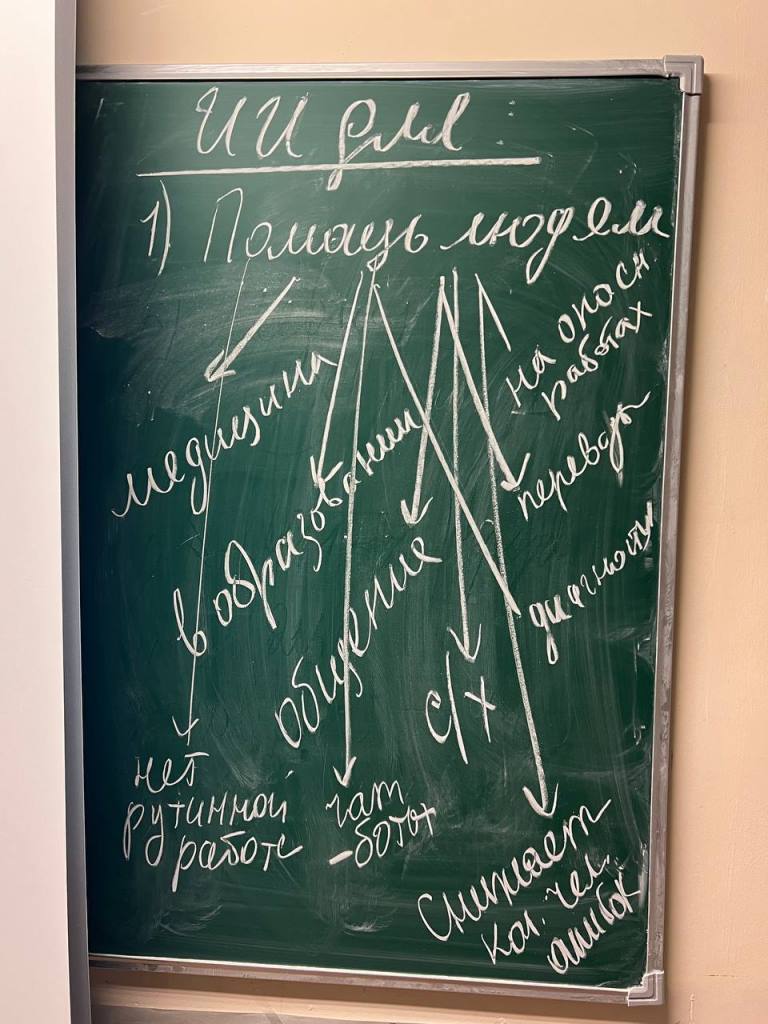 ИИ для :
1) Помощь людям
медицина
в образовании
общение
с/х
на опасн
работах
переводы
диагност
нет
рутинной
работе
чат
-боты
Снижает
кол. чел.
ошибок